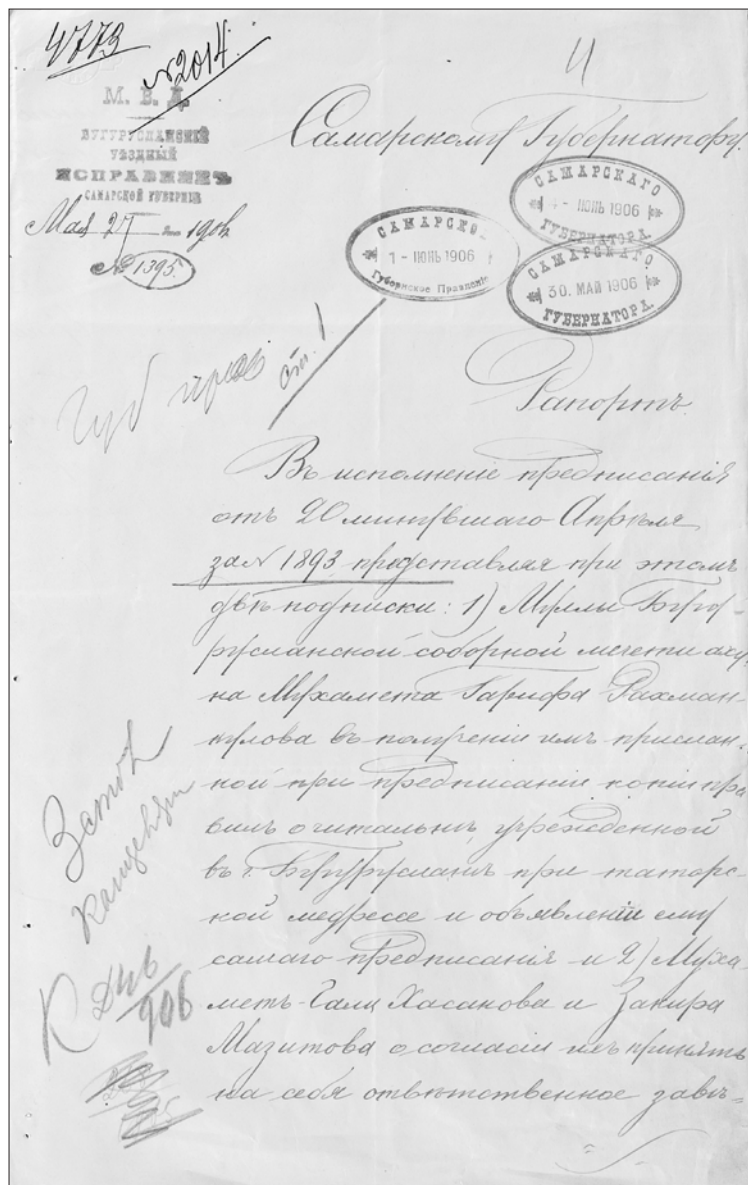 4773
№ 2014.
4
М. В. Д.
БУГУРУСЛАНСКІЙ
УѢЗДНЫЙ
ИСПРАВНИКЪ
САМАРСКОЙ ГУБЕРНІИ
Мая 27 1906
№ 1395.
Самарскому Губернатору.
САМАРСКАГО
4 - ІЮНЬ 1906
ГУБЕРНАТОРА.
САМАРСКОЕ
1 - ІЮНЬ 1906
Губернское Правленіе
САМАРСКАГО
30. МАЙ 1906
ГУБЕРНАТОРА.
Губ прав
от. 1
Рапортъ.
Въ исполненіе предписанія
отъ 20 минувшаго Апрѣля
за № 1893 представляя при этомъ
двѣ подписки: 1) Муллы Бугу-
русланской соборной мечети аху-
на Мухамета Гарифа Рахман-
кулова въ полученіи имъ прислан-
ной при предписаніи копіи пра
вилъ о читальнѣ, учрежденной
въ г. Бугурусланѣ при татарс-
кой медрессе и объявленіи ему
самаго предписанія и 2) Муха-
метъ-Гали Хасанова и Закира
Мазитова о согласіи ихъ принять
на себя отвѣтственное завѣ-
К
906